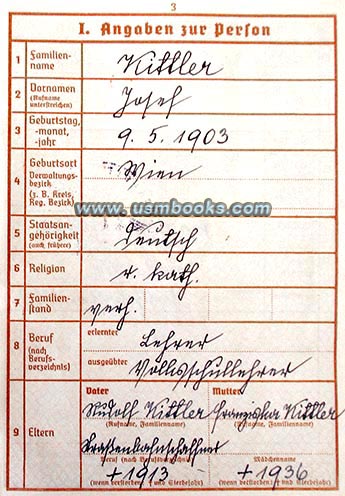 3
I. Angaben zur Person
1 Familien-
name
Kittler
2 Vornamen
(Rufname
unterstreichen)
Josef
3 Geburtstag,
-monat,
-jahr
9. 5. 1903
4 Geburtsort
Verwaltungs-
bezirk
(z. B. Kreis,
Reg. Bezirk)
Wien
www.usmbooks.com
5 Staatsan-
gehörigkeit
(auch frühere)
deutsch
6 Religion
r. kath.
7 Familien-
stand
verh.
8 Beruf
(nach
Berufs-
verzeichnis)
erlernter
Lehrer
ausgeübter
Volksschullehrer
9 Eltern
Vater
Mutter
Rudolf Kittler
Franziska Kittler
(Rufname, Familienname)
(Rufname, Familienname)
Straßenbahnschaffner
Beruf (nach Berufsverzeichnis)
Mädchenname
+ 1913
+ 1936
(wenn verstorben † und Sterbejahr)
(wenn verstorben † und Sterbejahr)